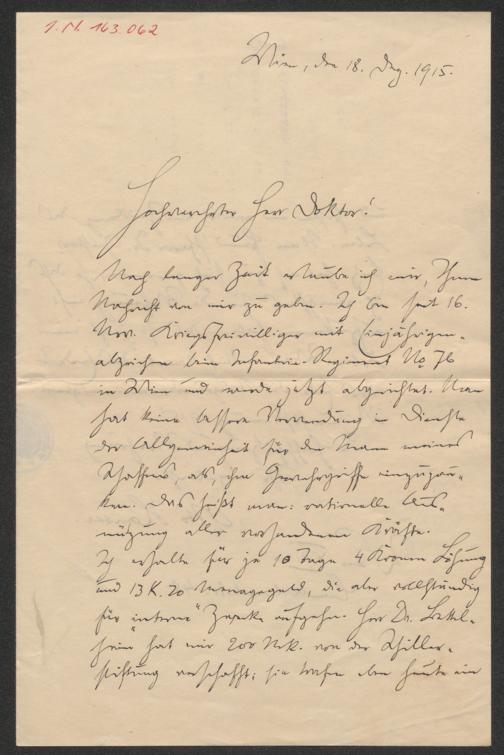 I.N. 163.062
Wien, den 18. Dez. 1915.
Hochverehrter Herr Doktor!
Nach langer Zeit erlaube ich mir, Ihnen
Nachricht von mir zu geben. Ich bin seit 16.
Nov. Kriegsfreiwilliger mit Einjährigen-
abzeichen beim Infanterie-Regiment No 76
in Wien und werde jetzt abgerichtet. Man
hat keine bessere Verwendung im Dienste
der Allgemeinheit für den Mann meines
Schaffens als, ihm Gewehrgriffe einzupau-
ken. Das heißt man: rationelle Aus-
nützung aller vorhandenen Kräfte.
Ich erhalte für je 10 Tage 4 Kronen Löhnung
und 13 K. 20 Menagegeld, die aber vollständig
für "interne" Zwecke aufgehen. Herr Dr. Bettel-
heim hat mir 200 Mk. von der Schiller-
stiftung verschafft; sie trafen eben heute ein